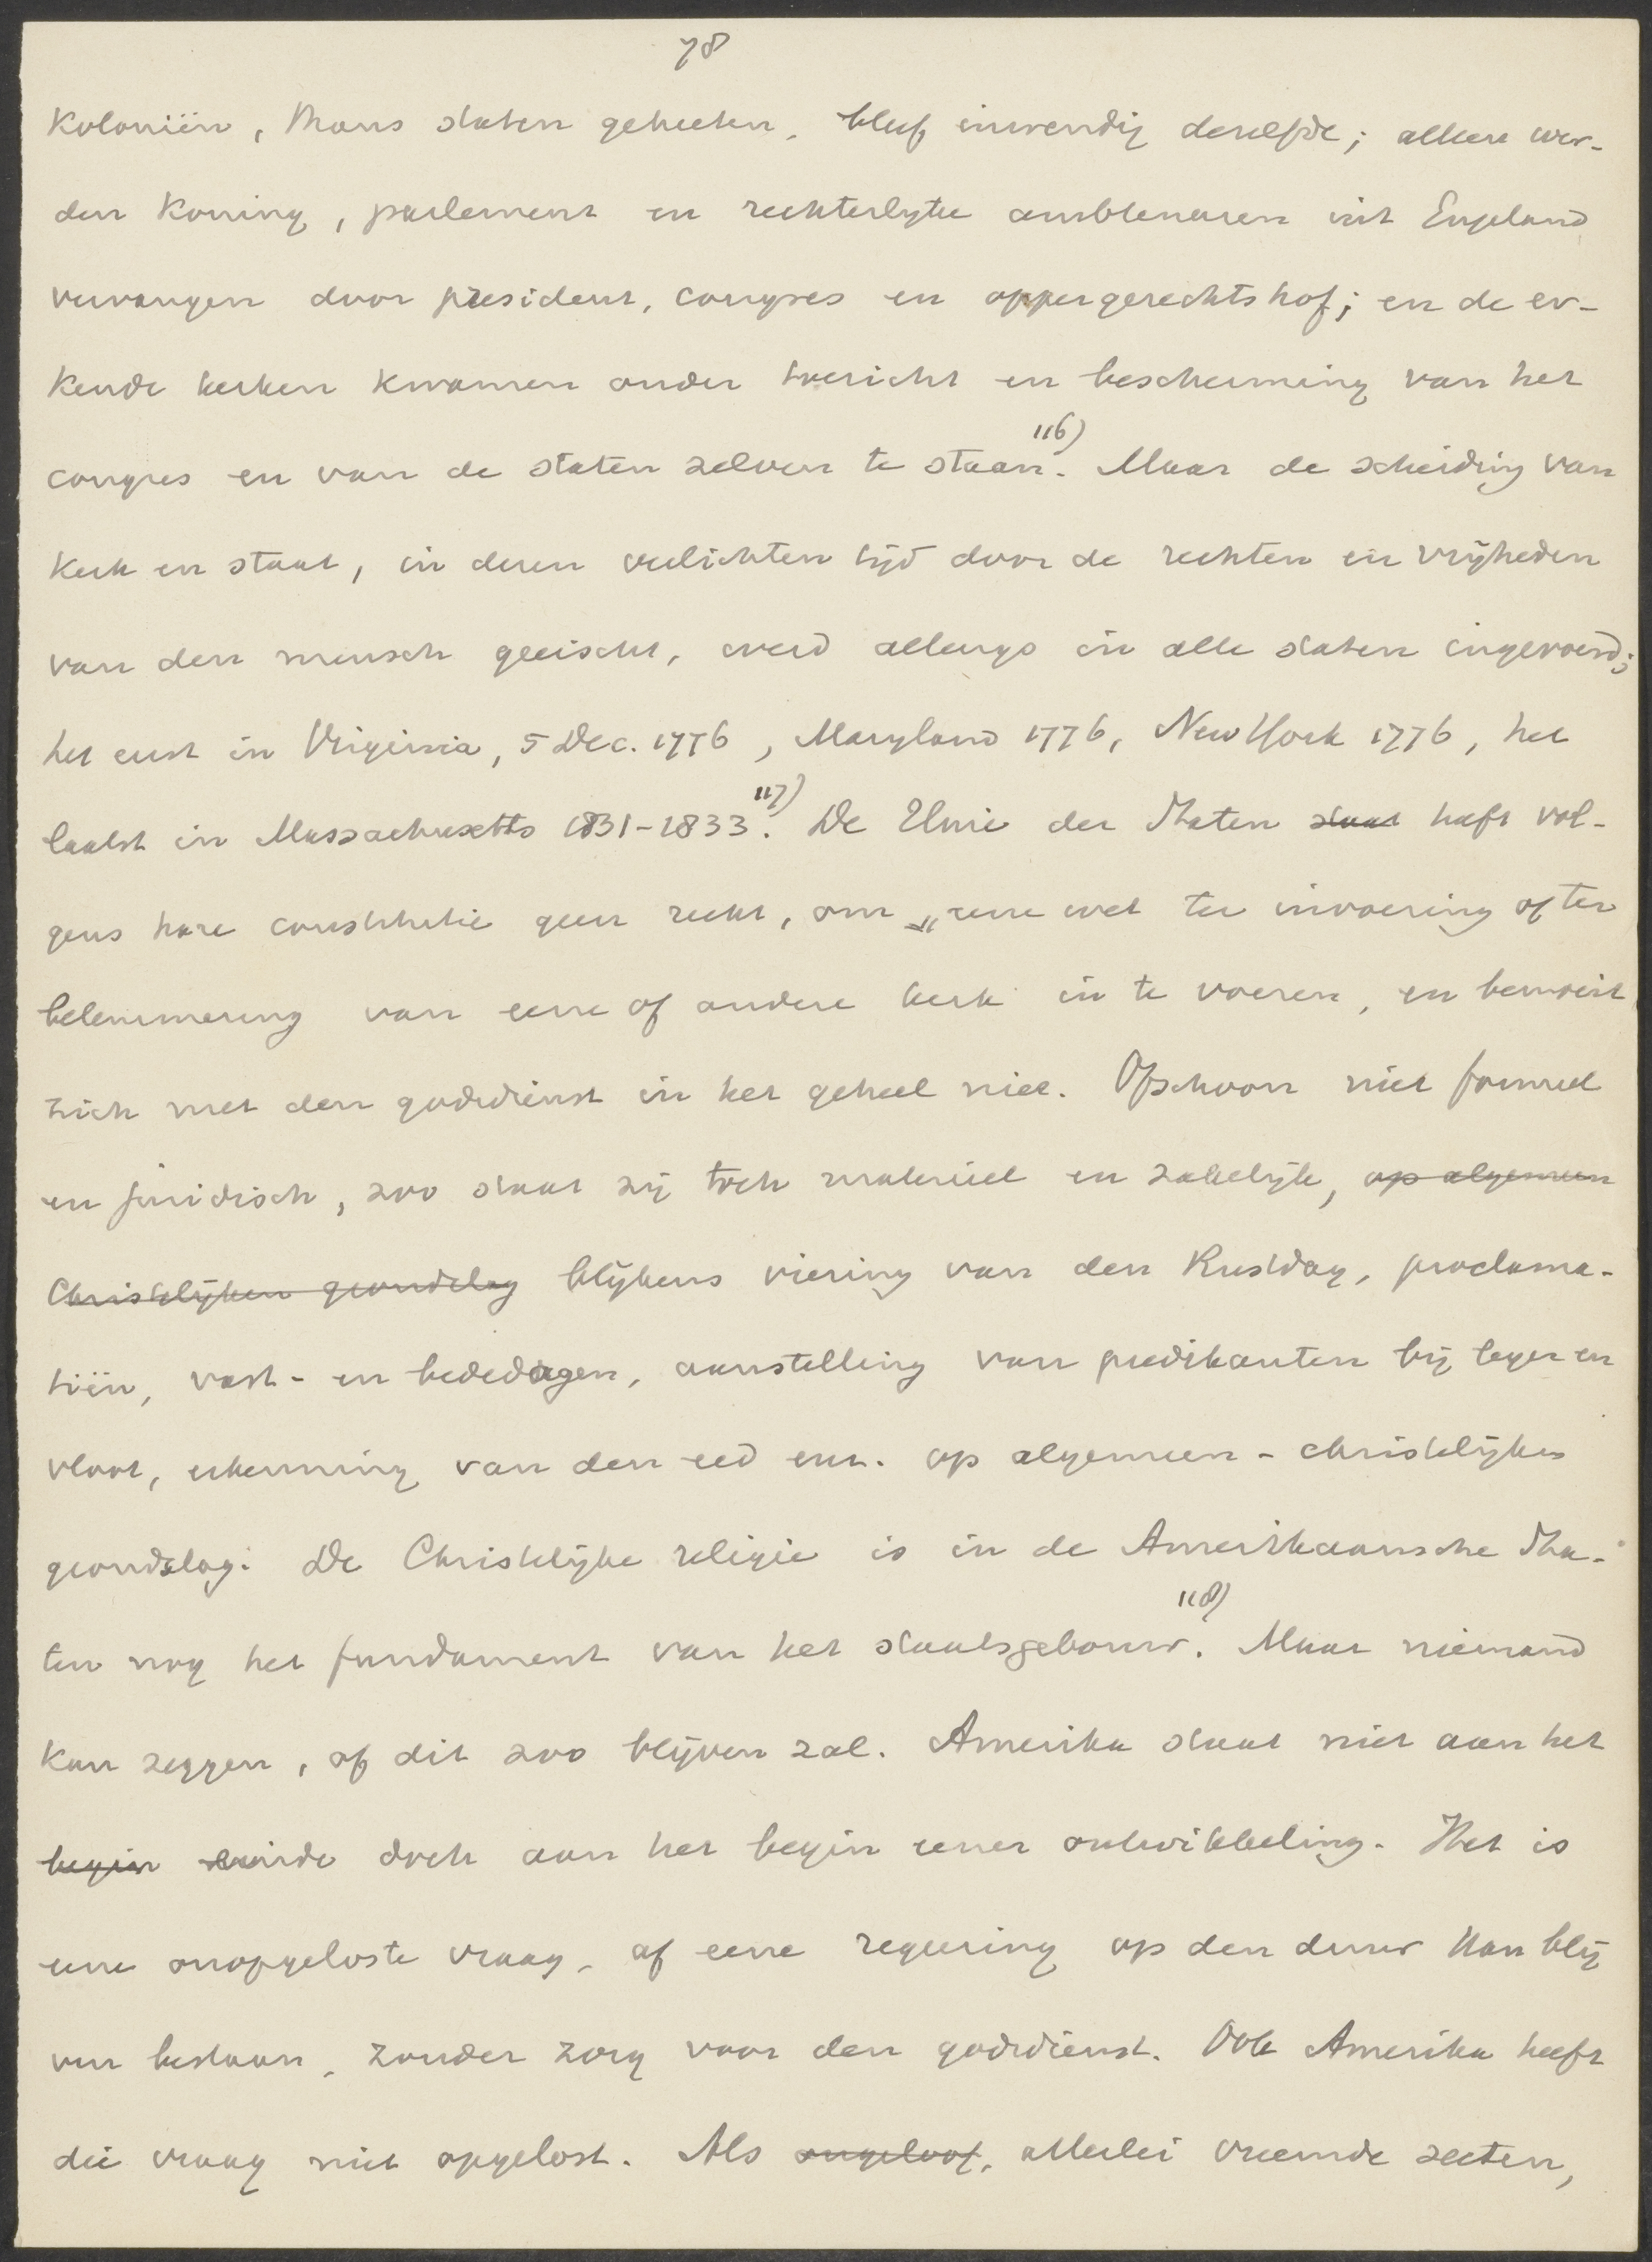 78
Koloniën, thans staten geheeten, bleef inwendig dezelfde; alleen wer-
den Koning, parlement en rechterlijke ambtenaren uit Engeland
vervangen door president, congres en oppergerechtshof; en de er-
kende kerken kwamen onder toezicht en bescherming van het
congres en van de staten zelven te staan. 116) Maar de scheiding van
Kerk en staat, in dezen verlichten tijd door de rechten en vrijheden
van den mensch geeischt, werd allengs in alle staten ingevoerd;
het eerst in Virginia, 5 Dec. 1776, Maryland 1776, New York 1776, het
laatst in Massachusetts 1831-1833. 117) De Unie der Staten staat heeft vol-
gens hare constitutie geen recht, om „eene wet ter invoering of ter
belemmering van eene of andere kerk in te voeren, en bemoeit
zich met den godsdienst in het geheel niet. Ofschoon niet formeel
en juridisch, zoo staat zij toch materieel en zakelijk, op algemeen
Christelijken grondslag blijkens viering van den Rustdag, proclama-
tiën, vast- en bededagen, aanstelling van predikanten bij leger en
vloot, erkenning van den eed enz. op algemeen-christelijken
grondslag. De Christelijke religie is in de Amerikaansche Sta-
ten nog het fundament van het staatsgebouw. 118) Maar niemand
kan zeggen, of dit zoo blijven zal. Amerika staat niet aan het
begin einde doch aan het begin eener ontwikkeling. Het is
eene onopgeloste vraag, of eene regeering op den duur kan blij
ven bestaan, zonder zorg voor den godsdienst. Ook Amerika heeft
die vraag niet opgelost. Als ongeloof, allerlei vreemde secten,